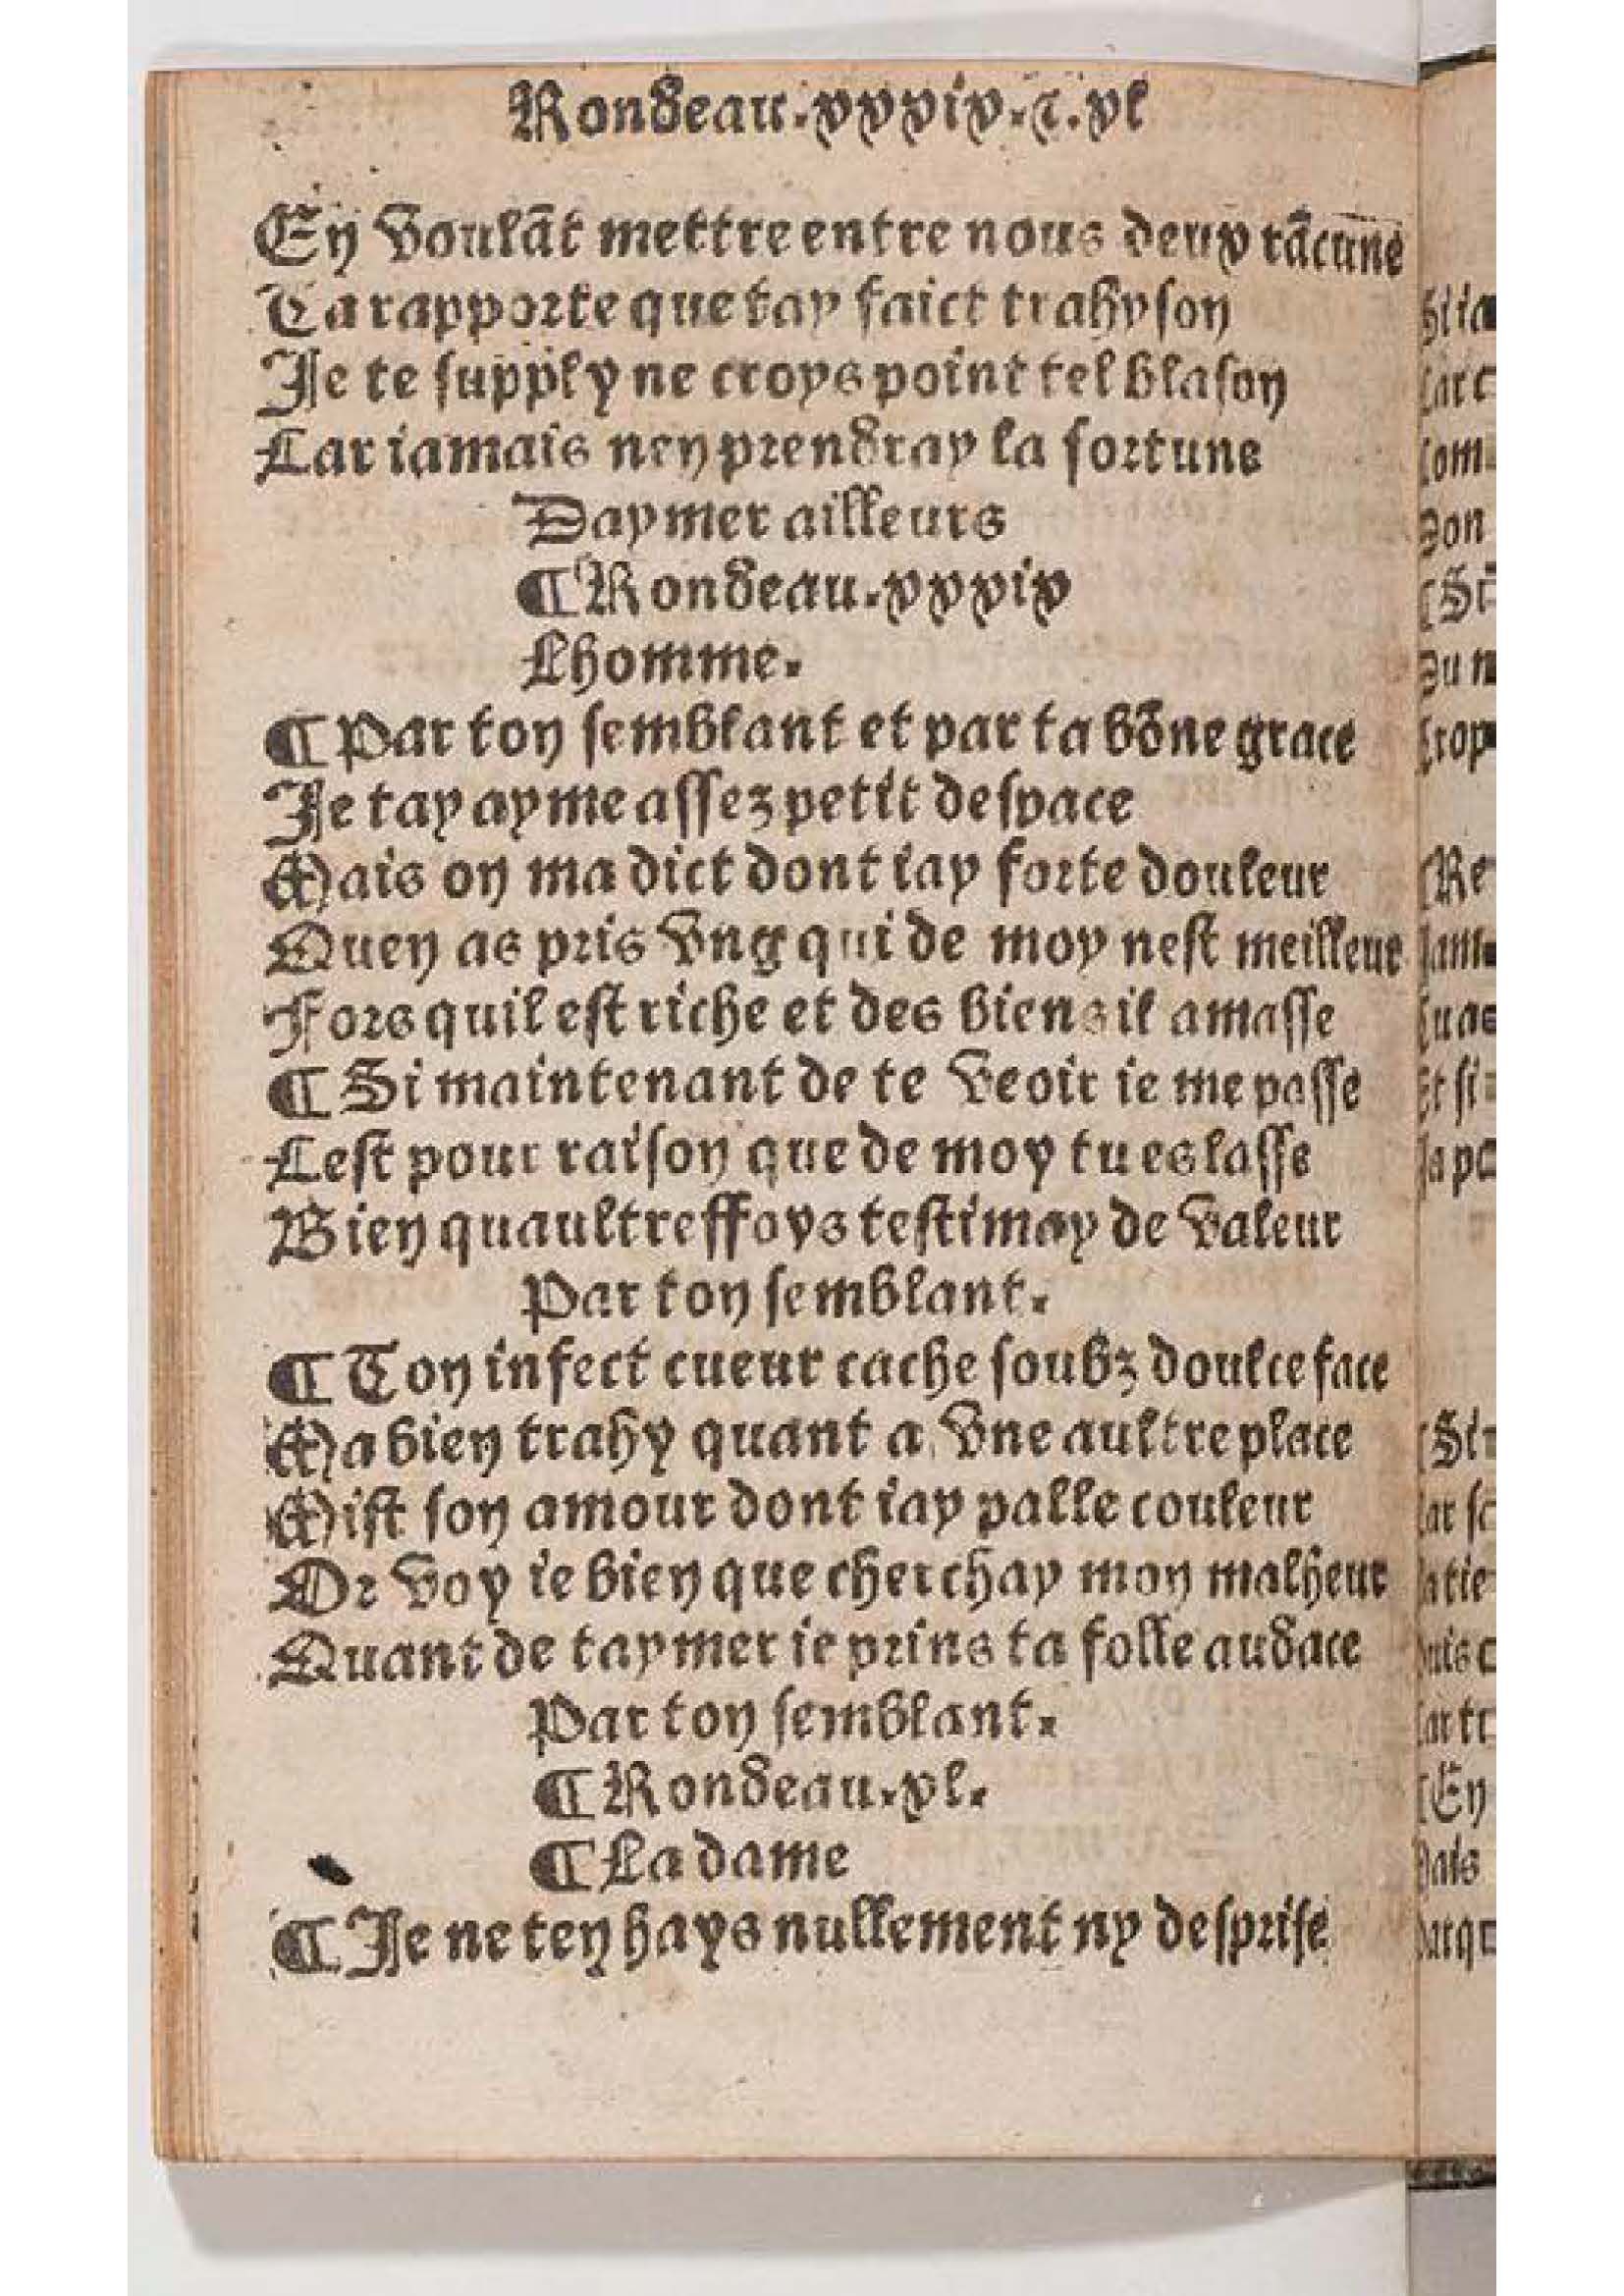 Rondeau.xxxix.⁊.xl
En voulāt mettre entre nous deux rācune
Ta rapporte que tay faict trahyson
Je te supply ne croys point tel blason
Car iamais nen prendray la fortune
Daymer ailleurs
¶Rondeau.xxxix
Lhomme.
¶Par ton semblant et par ta bōne grace
Je tay ayme assez petit despace
Mais on ma dict dont iay forte douleur
Quen as pris vng qui de moy nest meilleur
Fors quil est riche et des biens il amasse
¶Si maintenant de te veoir ie me passe
Cest pour raison que de moy tu es lasse
Bien quaultreffoys testimay de valeur
Par ton semblant.
¶Ton infect cueur cache soubz doulce face
Ma bien trahy quant a vne aultre place
Mist son amour dont iay palle couleur
Or voy ie bien que cherchay mon malheur
Quant de taymer ie prins ta folle audace
Par ton semblant.
¶Rondeau.xl.
¶La dame
¶Je ne ten hays nullement ny desprise